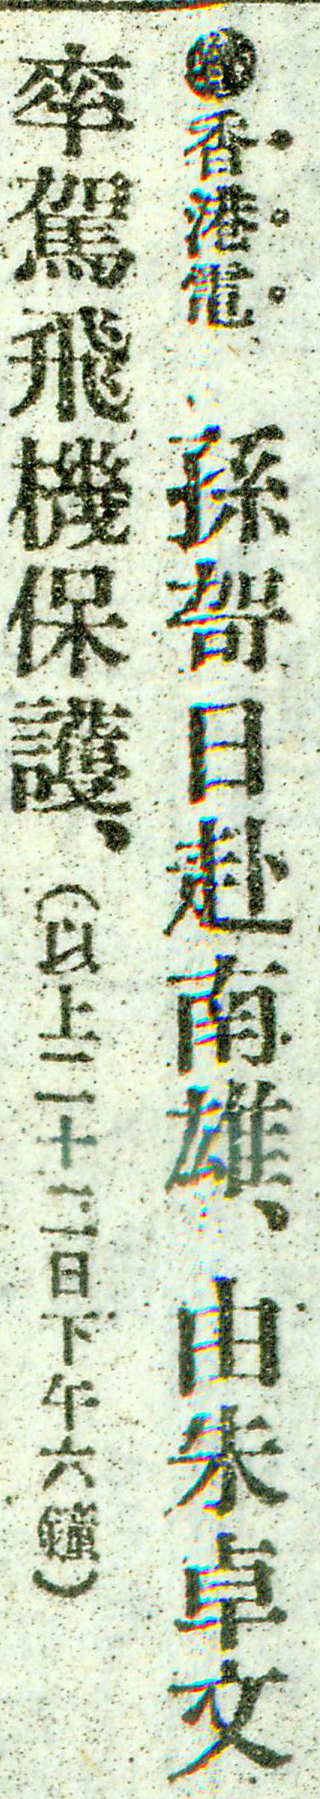 香港電　孫哿日赴南雄、由朱卓文
率駕飛機保護、（以上二十三日下午六鐘）